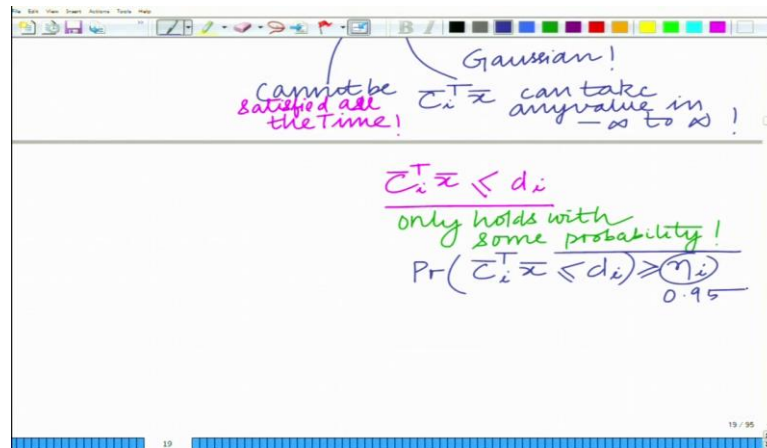 File Edit View Insert Actions Tools Help
Gaussian!
Cannot be satisfied all the Time!
C̅ᵢᵀ x̅ can take any value in -∞ to ∞ !
C̅ᵢᵀ x̅ ≤ dᵢ
only holds with
some probability!
Pr( C̅ᵢᵀ x̅ ≤ dᵢ) ≥ ηᵢ)
0.95
19 / 95
19